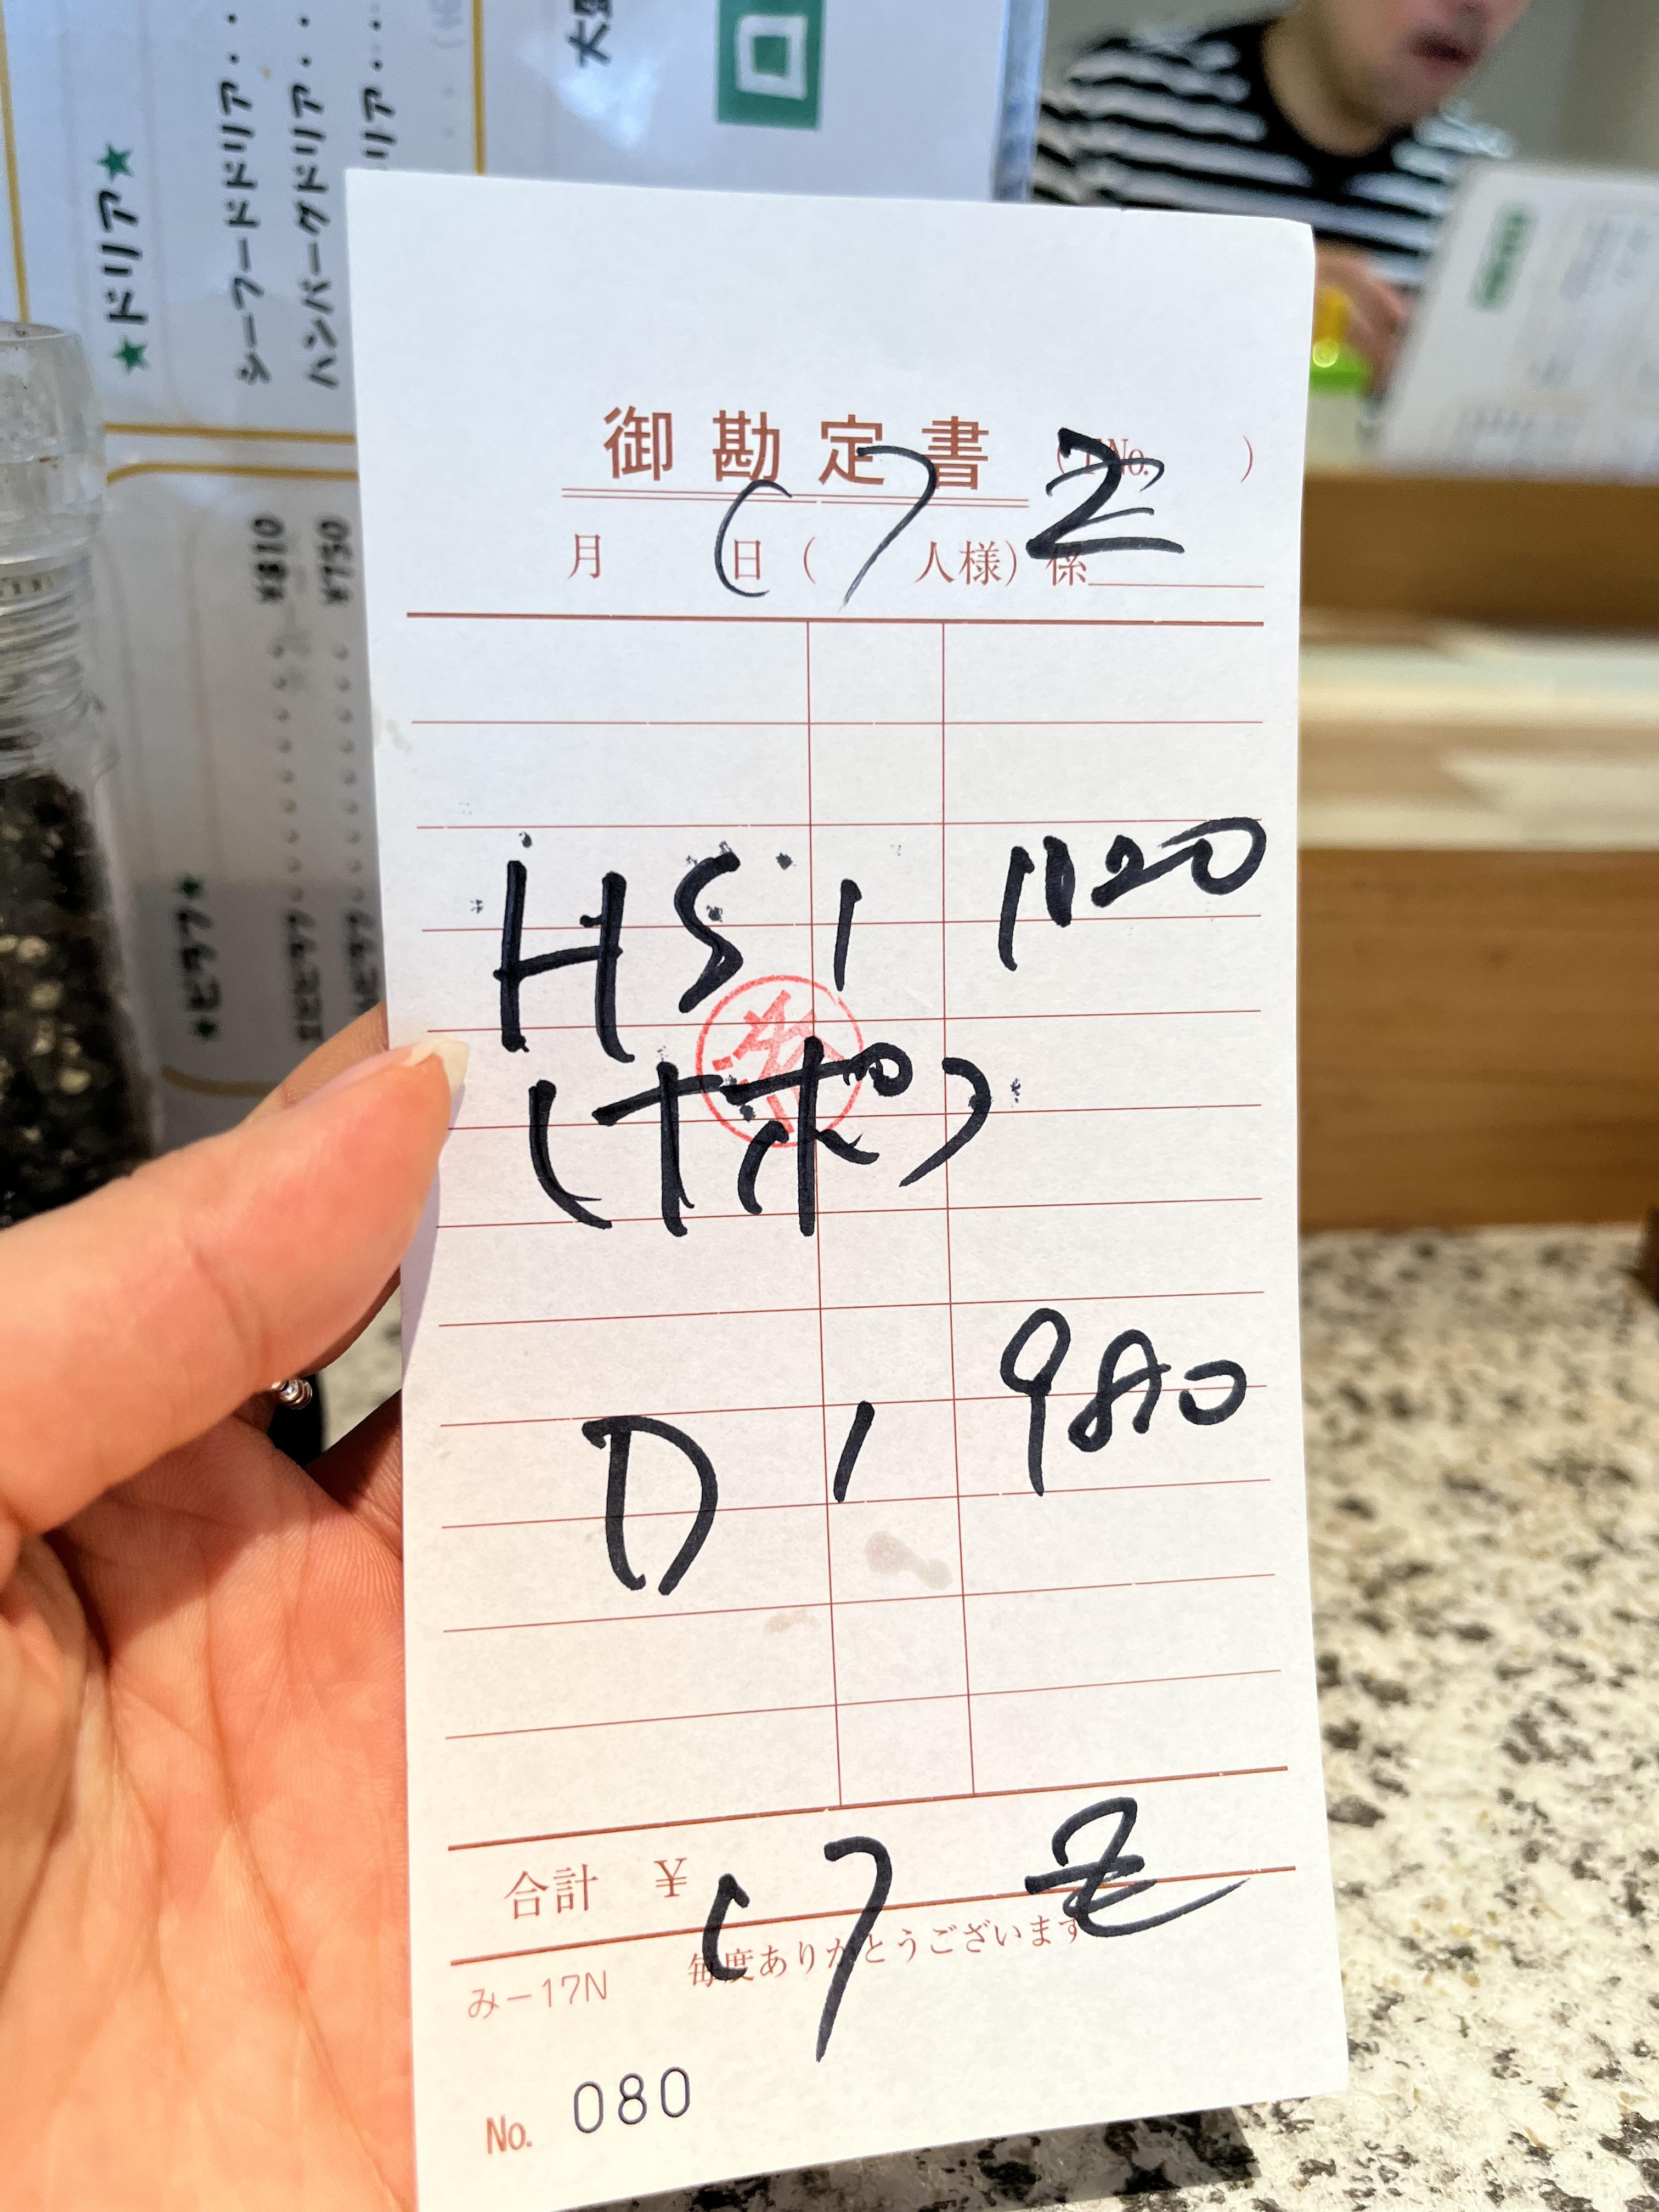 ★ドリア★
シーフードドリア・・
ハンバーグドリア・・
リア・・
大
¥810
¥750
★ピラフ★
エビピラフ
ピラフ
御勘定書 (T.No. )
月 日( 人様)係
C7 2
HS 1 1120
(トポ)
D 1 980
合計 ¥
C7 2
毎度ありがとうございます
み-17N
No. 080